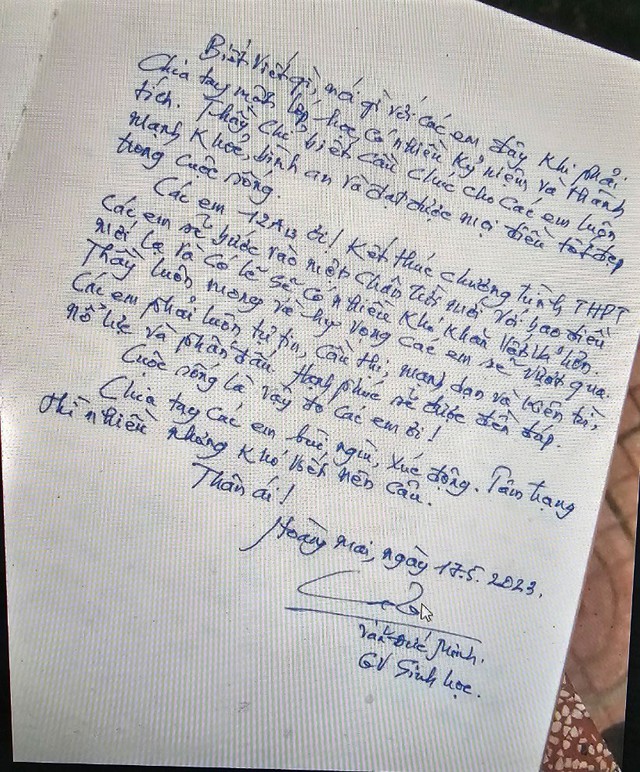 Biết viết gì, nói gì với các em đây khi phải
Chia tay một lớp học có nhiều kỷ niệm và thành
tích. Thầy chỉ biết cầu chúc cho các em luôn
mạnh khỏe, bình an và đạt được mọi điều tốt đẹp
trong cuộc sống.
Các em 12A13 ơi! Kết thúc chương trình THPT
các em sẽ bước vào một chân trời mới với bao điều
mới lạ và có lẽ sẽ có nhiều khó khăn vất vả hơn.
Thầy luôn mong và hy vọng các em sẽ vượt qua.
Các em phải luôn tự tin, cầu thị, mạnh dạn và kiên trì,
nỗ lực và phấn đấu. Hạnh phúc sẽ được đền đáp.
Cuộc sống là vậy đó các em ơi!
Chia tay các em bùi ngùi, xúc động. Tâm trạng
thì nhiều nhưng khó viết nên câu.
Thân ái!
Hoàng Mai, ngày 17.5.2023.
Văn Đức Minh.
GV Sinh học.